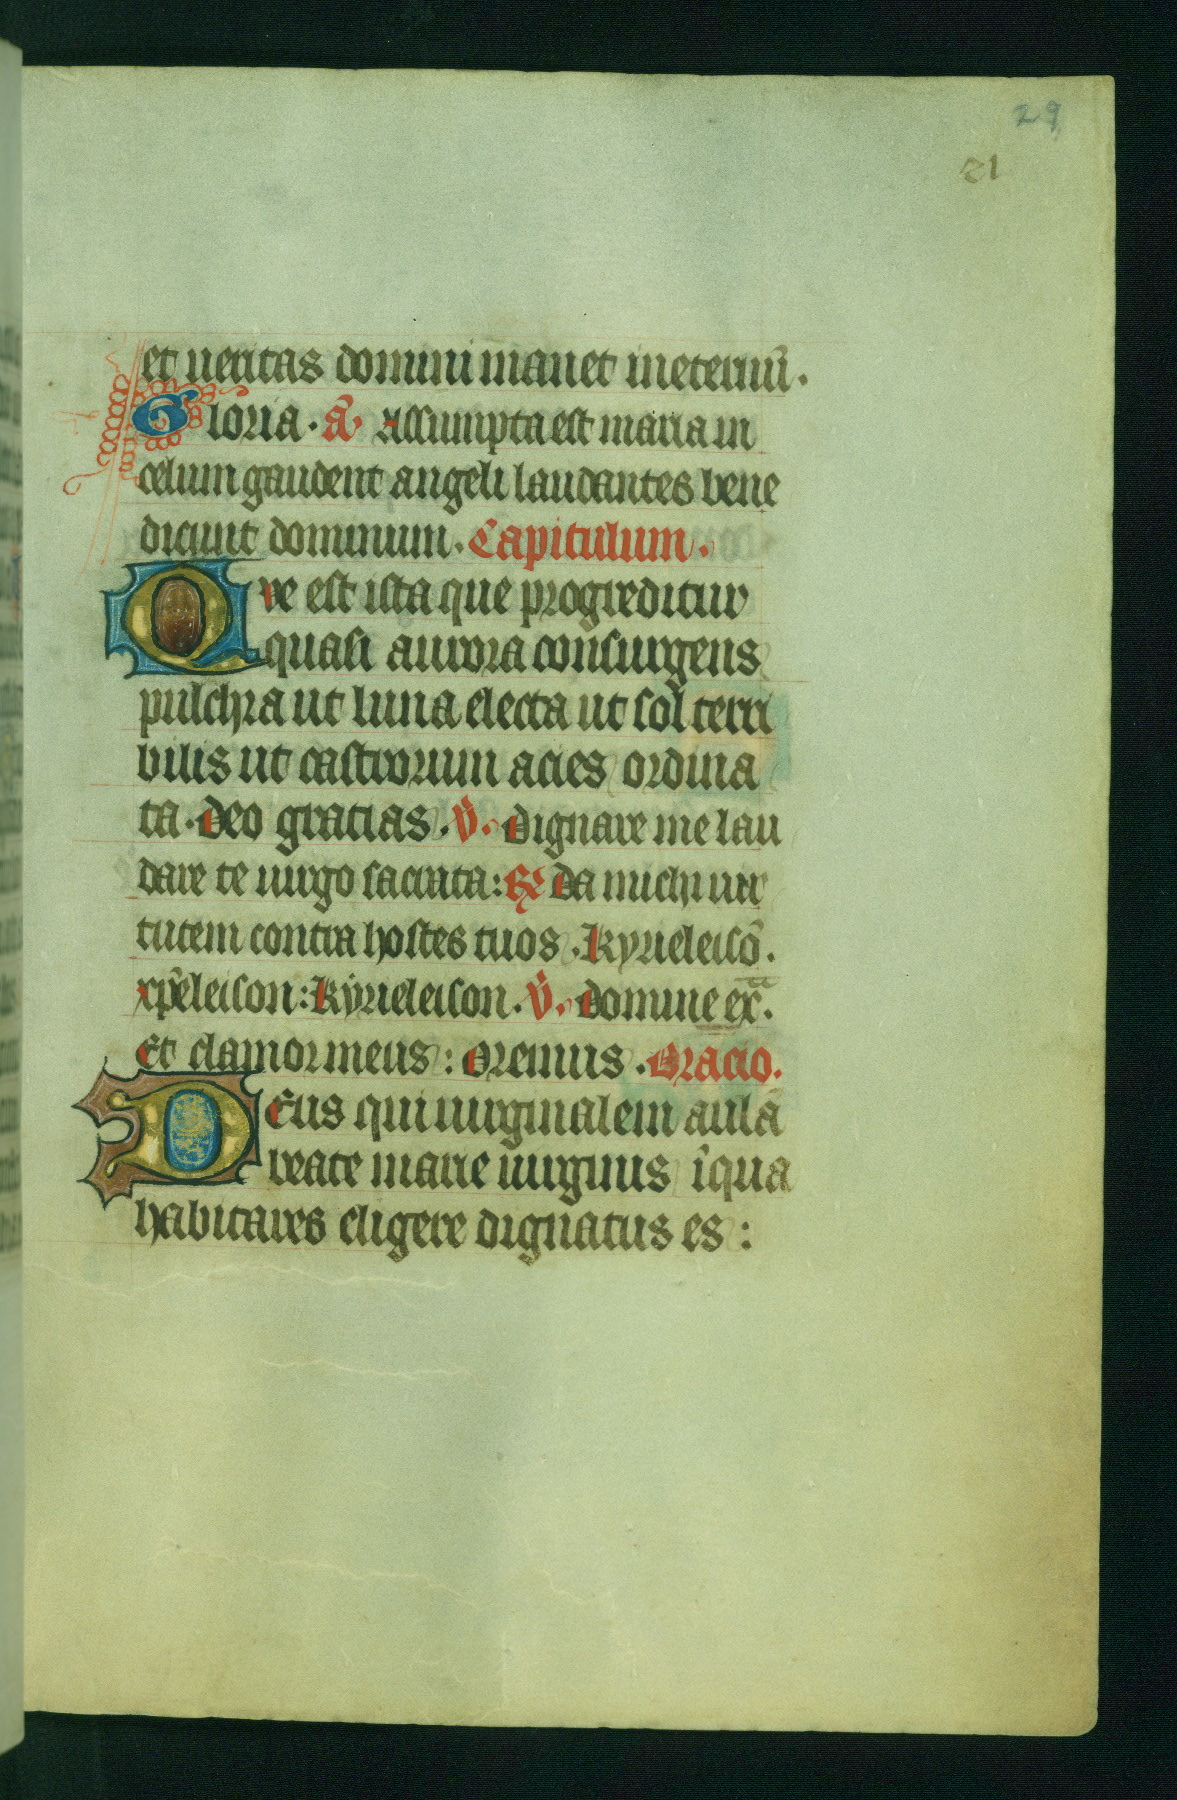 29
21
et ueritas domini manet ineternū.
Gloria. ā Assumpta est maria in
celum gaudent angeli laudantes bene
dicunt dominum. Capitulum.
Qve est ista que progreditur
quasi aurora consurgens
pulchra ut luna electa ut sol terri
bilis ut castrorum acies ordina
ta. Deo gracias. V̄. Dignare me lau
dare te uirgo sacrata: R̸ Da michi uir
tutem contra hostes tuos. Kyrieleisō.
xp̄eleison: Kyrieleison. V̄. Domine ex̄.
Et clamor meus: Oremus. Oracio.
DEus qui uirginalem aulā
beate marie uirginis īqua
habitares eligere dignatus es: